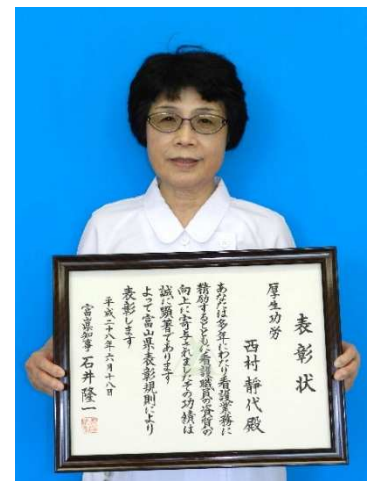 表彰状
厚生功労
西村靜代殿
あなたは多年にわたり看護業務に
精励するとともに看護職員の資質の
向上に寄与されましたその功績は
誠に顕著であります
よって富山県表彰規則により
表彰します
平成二十八年六月十八日
富山県知事 石井隆一